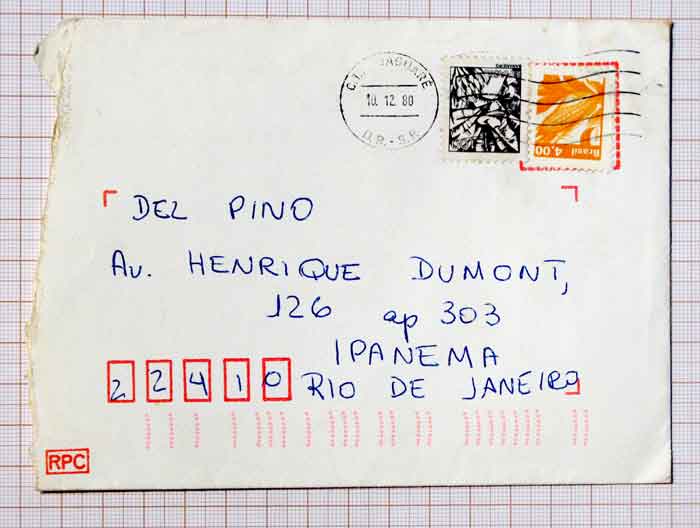 10.12.80
D.R. - S.P.
Brasil 4,00
DEL PINO
AV. HENRIQUE DUMONT,
126 ap 303
IPANEMA
22410 RIO DE JANEIRO
RPC